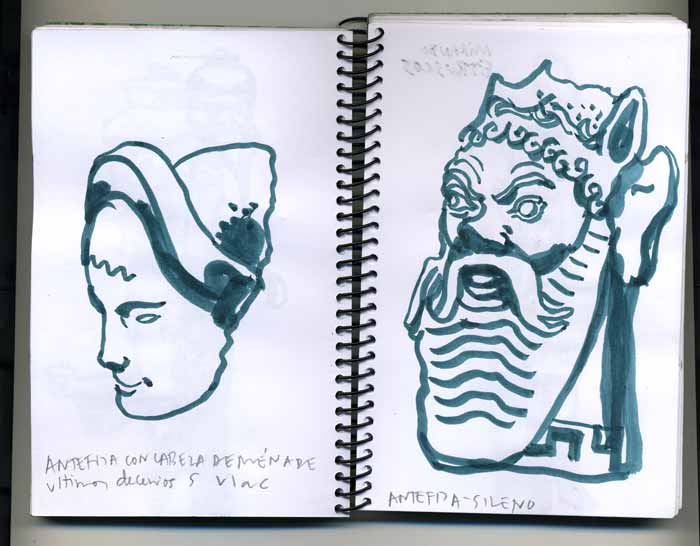 ANTEFIJA CON CABEZA DE MÉNADE
ultimos decenios S VI a C
ANTEFIJA-SILENO